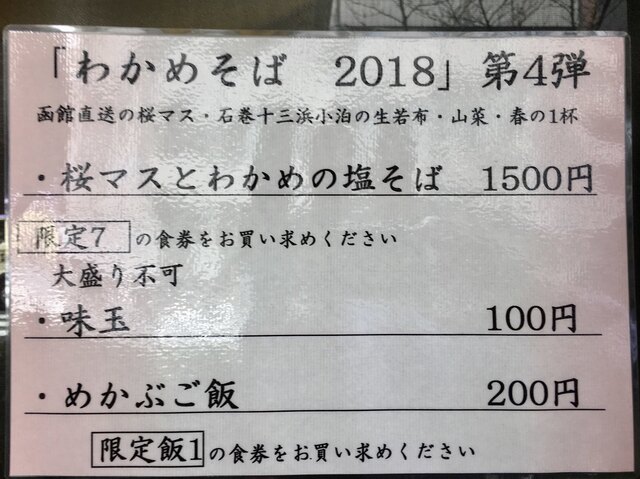 「わかめそば　2018」第4弾
函館直送の桜マス・石巻十三浜小泊の生若布・山菜・春の1杯
・桜マスとわかめの塩そば　1500円
限定7 の食券をお買い求めください
大盛り不可
・味玉　100円
・めかぶご飯　200円
限定飯1の食券をお買い求めください